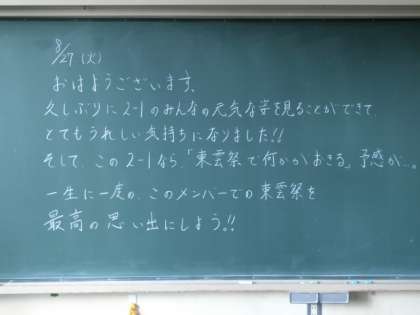 8/27 (火)
おはようございます。
久しぶりに2-1のみんなの元気な姿を見ることができて、
とてもうれしい気持ちになりました!!
そして、この2-1なら、「東雲祭で何かがおきる」予感が…。
一生に一度の、このメンバーでの東雲祭を
最高の思い出にしよう!!